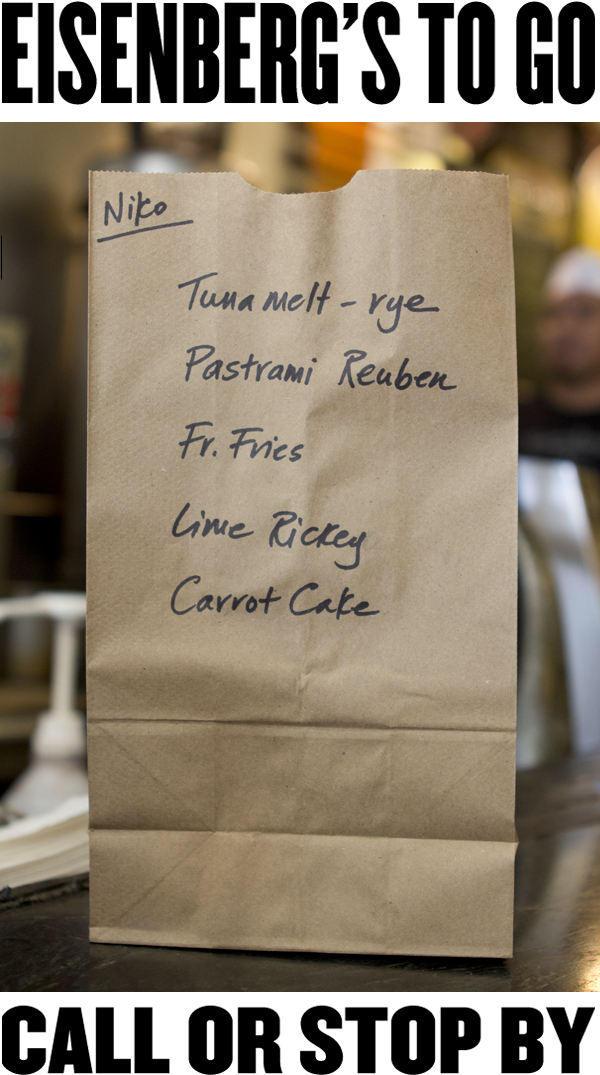 EISENBERG'S TO GO
Niko
Tuna melt - rye
Pastrami Reuben
Fr. Fries
Lime Rickey
Carrot Cake
CALL OR STOP BY